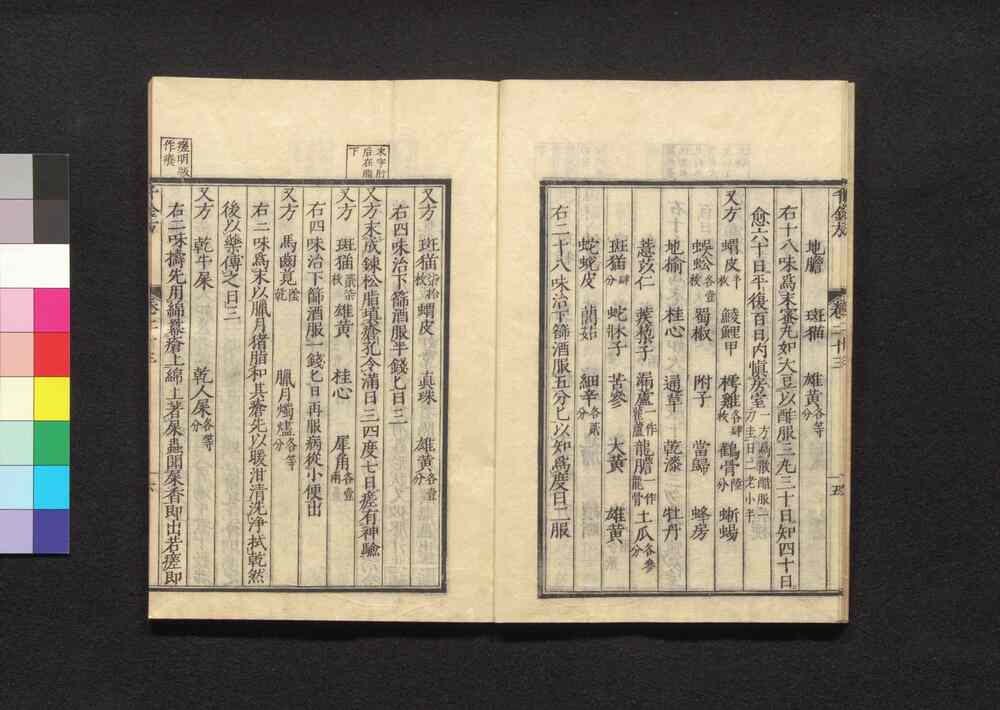 千金方 卷二十三 十五
地膽 斑猫 雄黃各等分
右十八味爲末蜜丸如大豆以酢服三九三十日知四十日
愈六十日平復百日內愼房室一方爲散醋服一刀圭日二老小半
又方 蝟皮半枚 鯪鯉甲 樗雞各肆枚 鸛骨陸分 蜥蜴
蜈蚣各壹枚 蜀椒 附子 當歸 蜂房
地榆 桂心 通草 乾漆 牡丹
薏苡仁 蒺藜子 漏蘆一作龍蘆 龍膽一作龍骨 土瓜各參分
斑猫肆分 蛇牀子 苦參 大黃 雄黃
蛇蛻皮 䕡茹 細辛各貳分
右二十八味治下篩酒服五分匕以知爲度日二服
末字前后在脂下
又方 斑猫柒拾枚 蝟皮 眞珠 雄黃各壹分
右四味治下篩酒服半錢匕日三
又方末成鍊松脂塡瘡孔令滿日三四度七日瘥有神驗
又方 斑猫貳柒枚 雄黃 桂心 犀角各壹兩
右四味治下篩酒服一錢匕日再服病從小便出
又方 馬齒莧陰乾 臘月燭燼各等分
右二味爲末以臘月猪脂和其瘡先以暖泔清洗浄拭乾然
後以藥傅之日三
又方 乾牛屎 乾人屎各等分
右二味擣先用綿蓋瘡上綿上著屎蟲聞屎香即出若瘥即
千金方 卷二十三